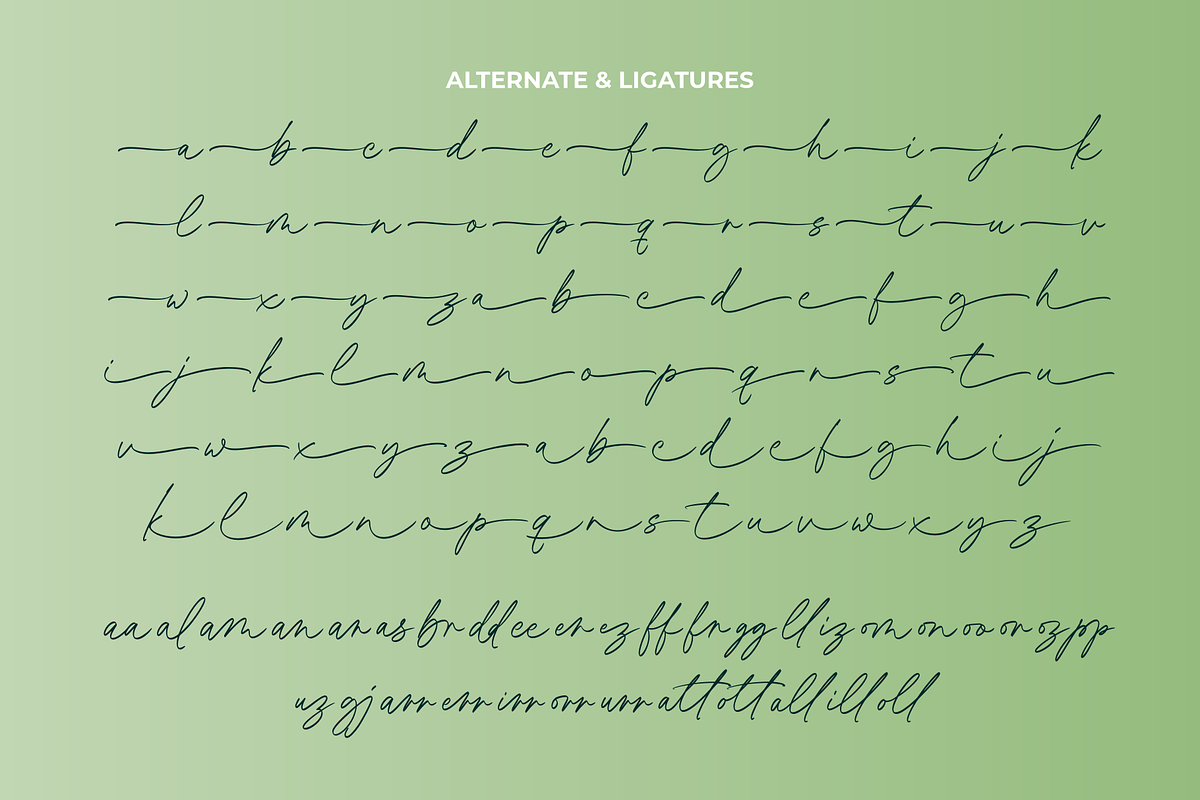 ALTERNATE & LIGATURES
a b c d e f g h i j k
l m n o p q r s t u v
w x y z a b c d e f g h
i j k l m n o p q r s t u
v w x y z a b c d e f g h i j
k l m n o p q r s t u v w x y z
aa al am an ar as br dd ee er ez ff fr gg ll iz om on oo or oz pp
uz gj arr err irr orr urr att ott all ill oll